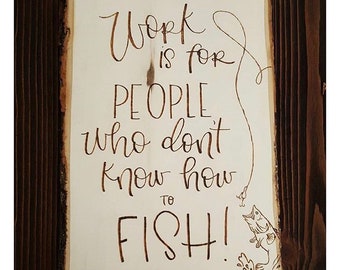 Work
is for
PEOPLE
who don't
know how
TO
FISH!